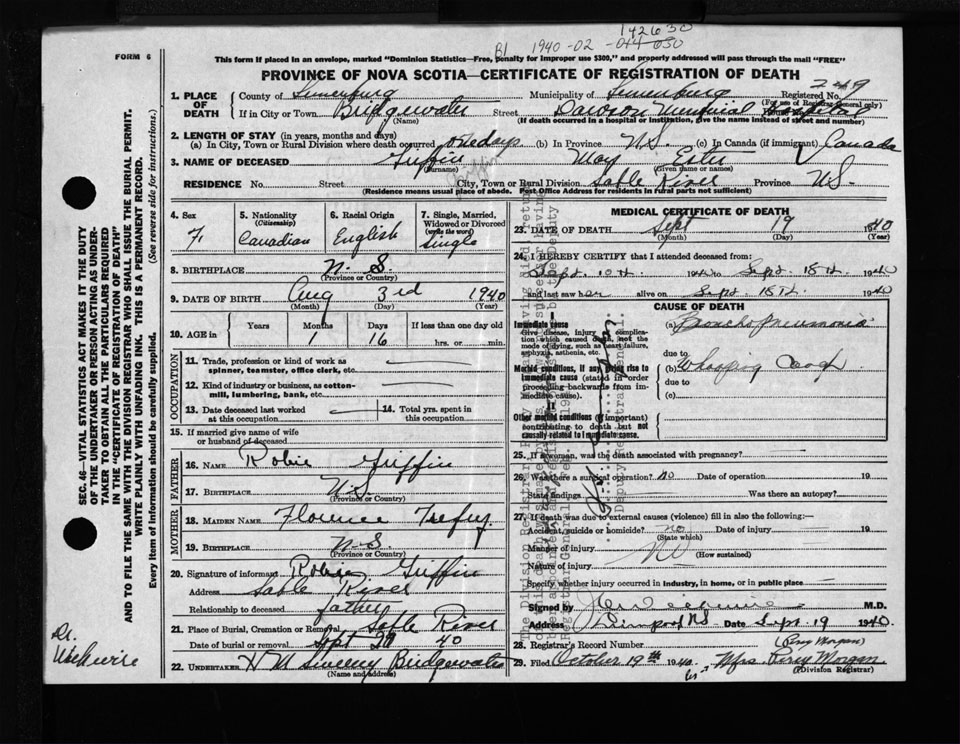 142630
B1 1940-02-014-030
FORM 6
This form if placed in an envelope, marked "Dominion Statistics—Free, penalty for improper use $300," and properly addressed will pass through the mail "FREE"
PROVINCE OF NOVA SCOTIA—CERTIFICATE OF REGISTRATION OF DEATH
249
1. PLACE OF DEATH County of Lunenburg Municipality of Lunenburg Registered No.
(For use of Registrar General only)
If in City or Town Bridgewater Street Dawson Memorial Hospital
(Name) (If death occurred in a hospital or institution, give the name instead of street and number)
2. LENGTH OF STAY (in years, months and days)
(a) In City, Town or Rural Division where death occurred one day (b) In Province N.S. (c) In Canada (if immigrant) Canada
3. NAME OF DECEASED Griffin May
(Surname) (Given name or names)
RESIDENCE No. Street City, Town or Rural Division Sable River Province N.S.
(Residence means usual place of abode. Post Office Address for residents in rural parts not sufficient)
4. Sex F. 5. Nationality (Citizenship) Canadian 6. Racial Origin English 7. Single, Married, Widowed or Divorced (write the word) Single
8. BIRTHPLACE N.S.
(Province or Country)
9. DATE OF BIRTH Aug 3rd 1940
(Month) (Day) (Year)
10. AGE in Years Months 1 Days 16 If less than one day old hrs. or min.
OCCUPATION
11. Trade, profession or kind of work as spinner, teamster, office clerk, etc.
12. Kind of industry or business, as cotton-mill, lumbering, bank, etc.
13. Date deceased last worked at this occupation 14. Total yrs. spent in this occupation
15. If married give name of wife or husband of deceased
FATHER
16. NAME Robie Griffin
17. BIRTHPLACE N.S.
(Province or Country)
MOTHER
18. MAIDEN NAME Florence
19. BIRTHPLACE N.S.
(Province or Country)
20. Signature of informant Robie Griffin
Address Sable River
Relationship to deceased father
21. Place of Burial, Cremation or Removal Sable River
Date of burial or removal Sept 20 40
22. UNDERTAKER H M Sweeny Bridgewater
(Name and address)
MEDICAL CERTIFICATE OF DEATH
23. DATE OF DEATH Sept 19 1940
(Month) (Day) (Year)
24. I HEREBY CERTIFY that I attended deceased from:
Sept. 10th 1940 to Sept 18th 1940
and last saw her alive on Sept 18th 1940
CAUSE OF DEATH
Immediate cause
Give disease, injury or complication which caused death, not the mode of dying, such as heart failure, asphyxia, asthenia, etc.
(a) Bronchopneumonia
due to
Morbid conditions, if any, giving rise to immediate cause (stated in order proceeding backwards from immediate cause).
(b) Whooping Cough
due to
(c)
Other morbid conditions (if important) contributing to death but not causally related to immediate cause.
25. If a woman, was the death associated with pregnancy?
26. Was there a surgical operation? no Date of operation 19
State findings Was there an autopsy?
27. If death was due to external causes (violence) fill in also the following:—
Accident, suicide or homicide? no Date of injury 19
(State which)
Manner of injury No (How sustained)
Nature of injury
Specify whether injury occurred in industry, in home, or in public place
Signed by M.D.
Address Liverpool N.S. Date Sept. 19 1940
28. Registrar's Record Number (Percy Morgan)
29. Filed October 19th 1940 Mrs. Percy Morgan
(Division Registrar)
SEC. 46—VITAL STATISTICS ACT MAKES IT THE DUTY OF THE UNDERTAKER OR PERSON ACTING AS UNDERTAKER TO OBTAIN ALL THE PARTICULARS REQUIRED IN THE "CERTIFICATE OF REGISTRATION OF DEATH"
AND TO FILE THE SAME WITH THE DIVISION REGISTRAR WHO SHALL ISSUE THE BURIAL PERMIT.
WRITE PLAINLY WITH UNFADING INK. THIS IS A PERMANENT RECORD.
Every item of information should be carefully supplied. (See reverse side for instructions.)
Dr.